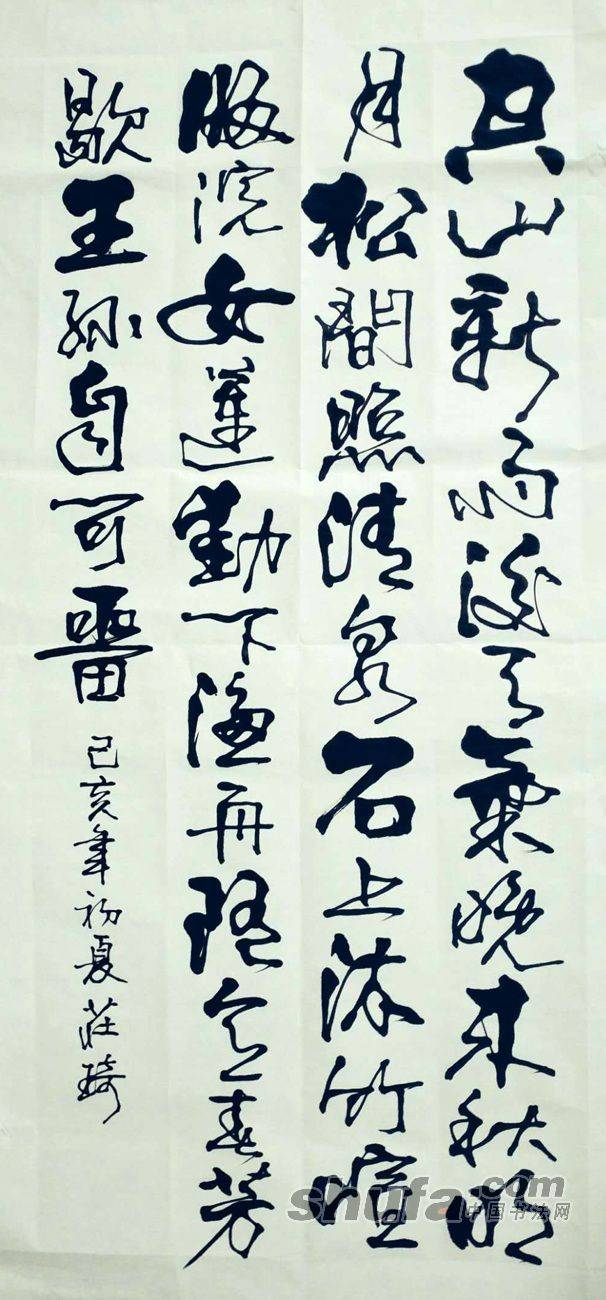 空山新雨後天氣晚來秋明
月松間照清泉石上流竹喧
歸浣女蓮動下漁舟隨意春芳
歇王孫自可留
己亥年初夏莊琦
shufa.com
中国书法网